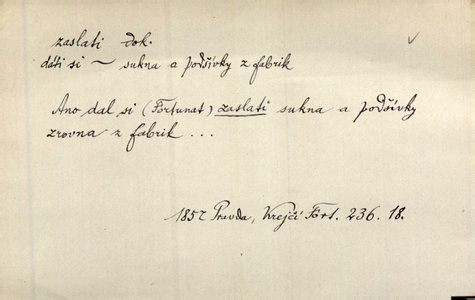 zaslati dok.
dáti si ~ sukna a podšívky z fabrik
Ano dal si (Fortunat) zaslati sukna a podšívky
zrovna z fabrik ...
1857 Pravda, Krejčí Fort. 236. 18.